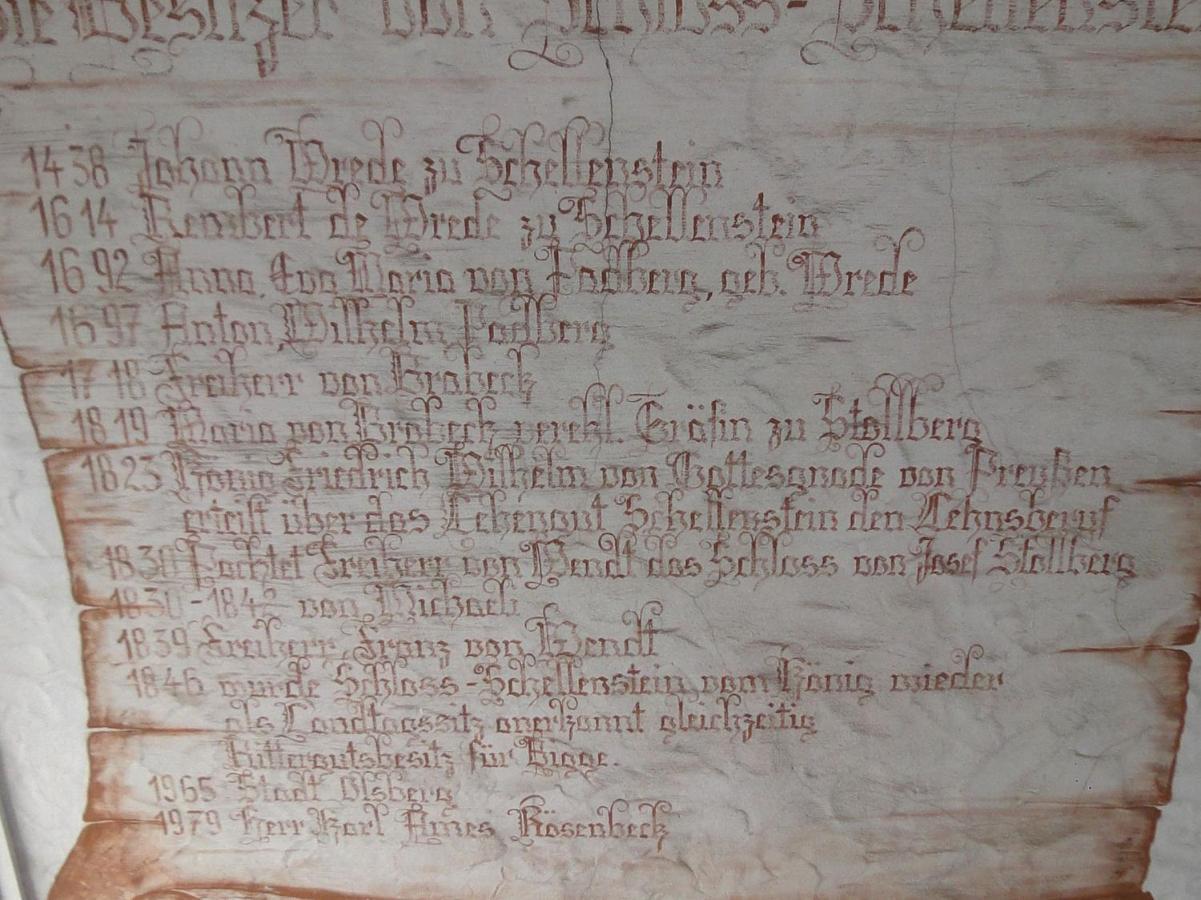 Die Besitzer von Schloss-Schellenste
1438 Johann Wrede zu Schellenstein
1614 Rembert de Wrede zu Schellenstein
1692 Anna, Eva Maria von Padberg, geb. Wrede
1697 Anton, Wilhelm Padberg
1718 Freiherr von Brabeck
1819 Maria von Brabeck verehl. Gräfin zu Stollberg
1823 König Friedrich Wilhelm von Gottesgnade von Preußen
erteilt über das Lehengut Schellenstein den Lehnsberuf
1830 Pachtet Freiherr von Wendt das Schloss von Josef Stollberg
1830-1842 von Michaeli
1839 Freiherr, Franz von Wendt
1846 wurde Schloss-Schellenstein vom König wieder
als Landtagssitz anerkannt gleichzeitig
Rittergutsbesitz für Bigge.
1965 Stadt Olsberg
1979 Herr Karl Rösenbeck